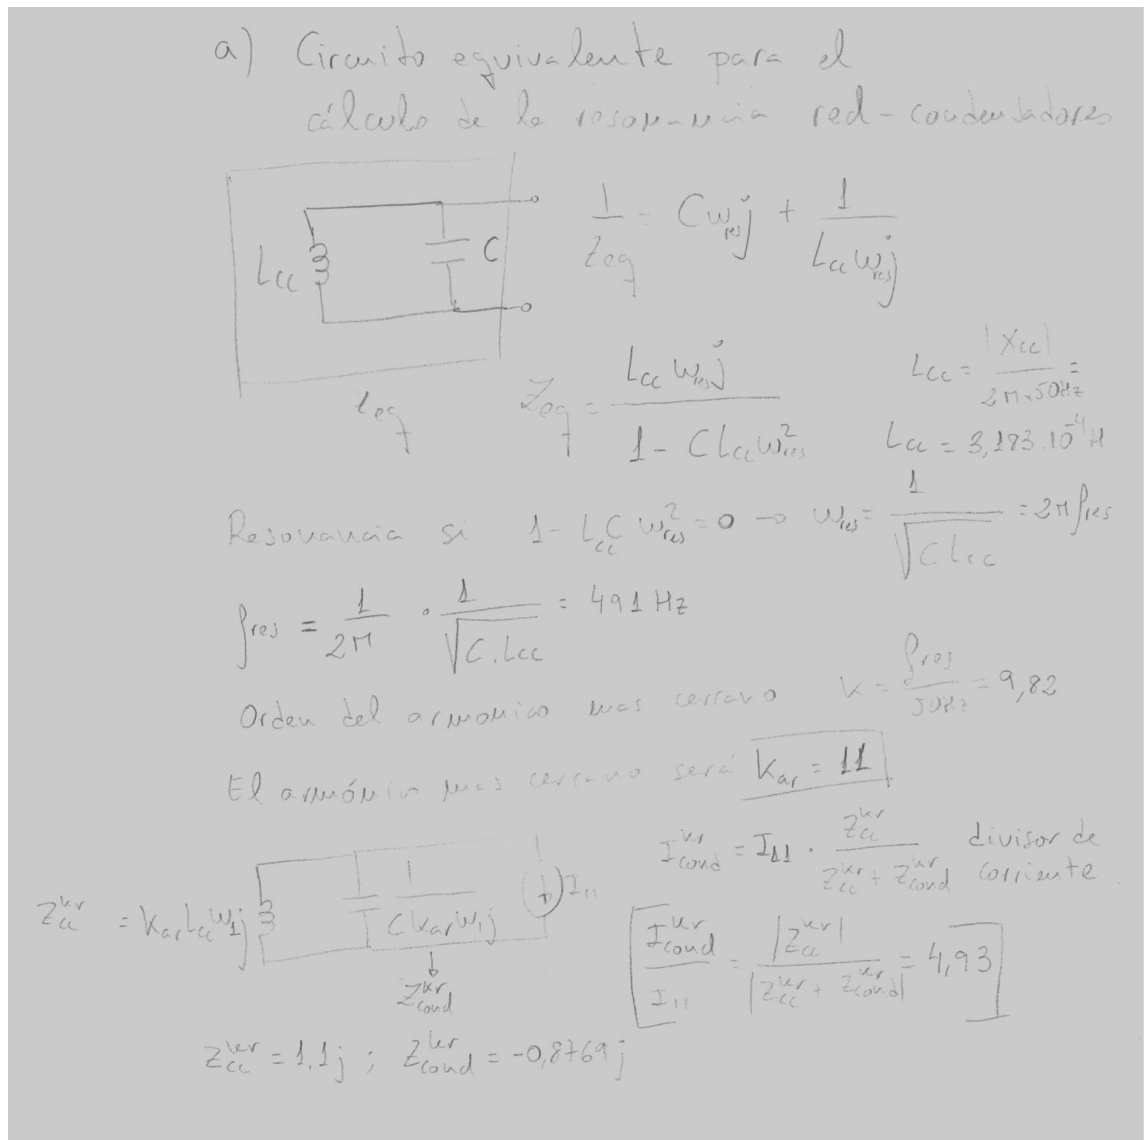 a) Circuito equivalente para el
cálculo de la resonancia red-condensadores
1/Zeq = Cω_res j + 1/(Lcc ω_res j)
Lcc
C
Zeq
Zeq = Lcc ω_res j / (1 - C Lcc ω_res²)
Lcc = |Xcc| / (2π×50Hz) =
Lcc = 3,183·10⁻⁴ H
Resonancia si 1 - Lcc C ω_res² = 0 → ω_res = 1/√(C Lcc) = 2π f_res
f_res = 1/2π · 1/√(C.Lcc) = 491 Hz
Orden del armonico mas cercano k = f_res/50Hz = 9,82
El armónico mas cercano será k_ar = 11
Zcc^kr = k_ar Lcc ω₁ j
1/(C k_ar ω₁ j)
I₁₁
Z_cond^kr
I_cond^kr = I₁₁ · Zcc^kr / (Zcc^kr + Z_cond^kr) divisor de corriente
I_cond^kr / I₁₁ = |Zcc^kr| / |Zcc^kr + Z_cond^kr| = 4,93
Zcc^kr = 1,1j ; Z_cond^kr = -0,8769j